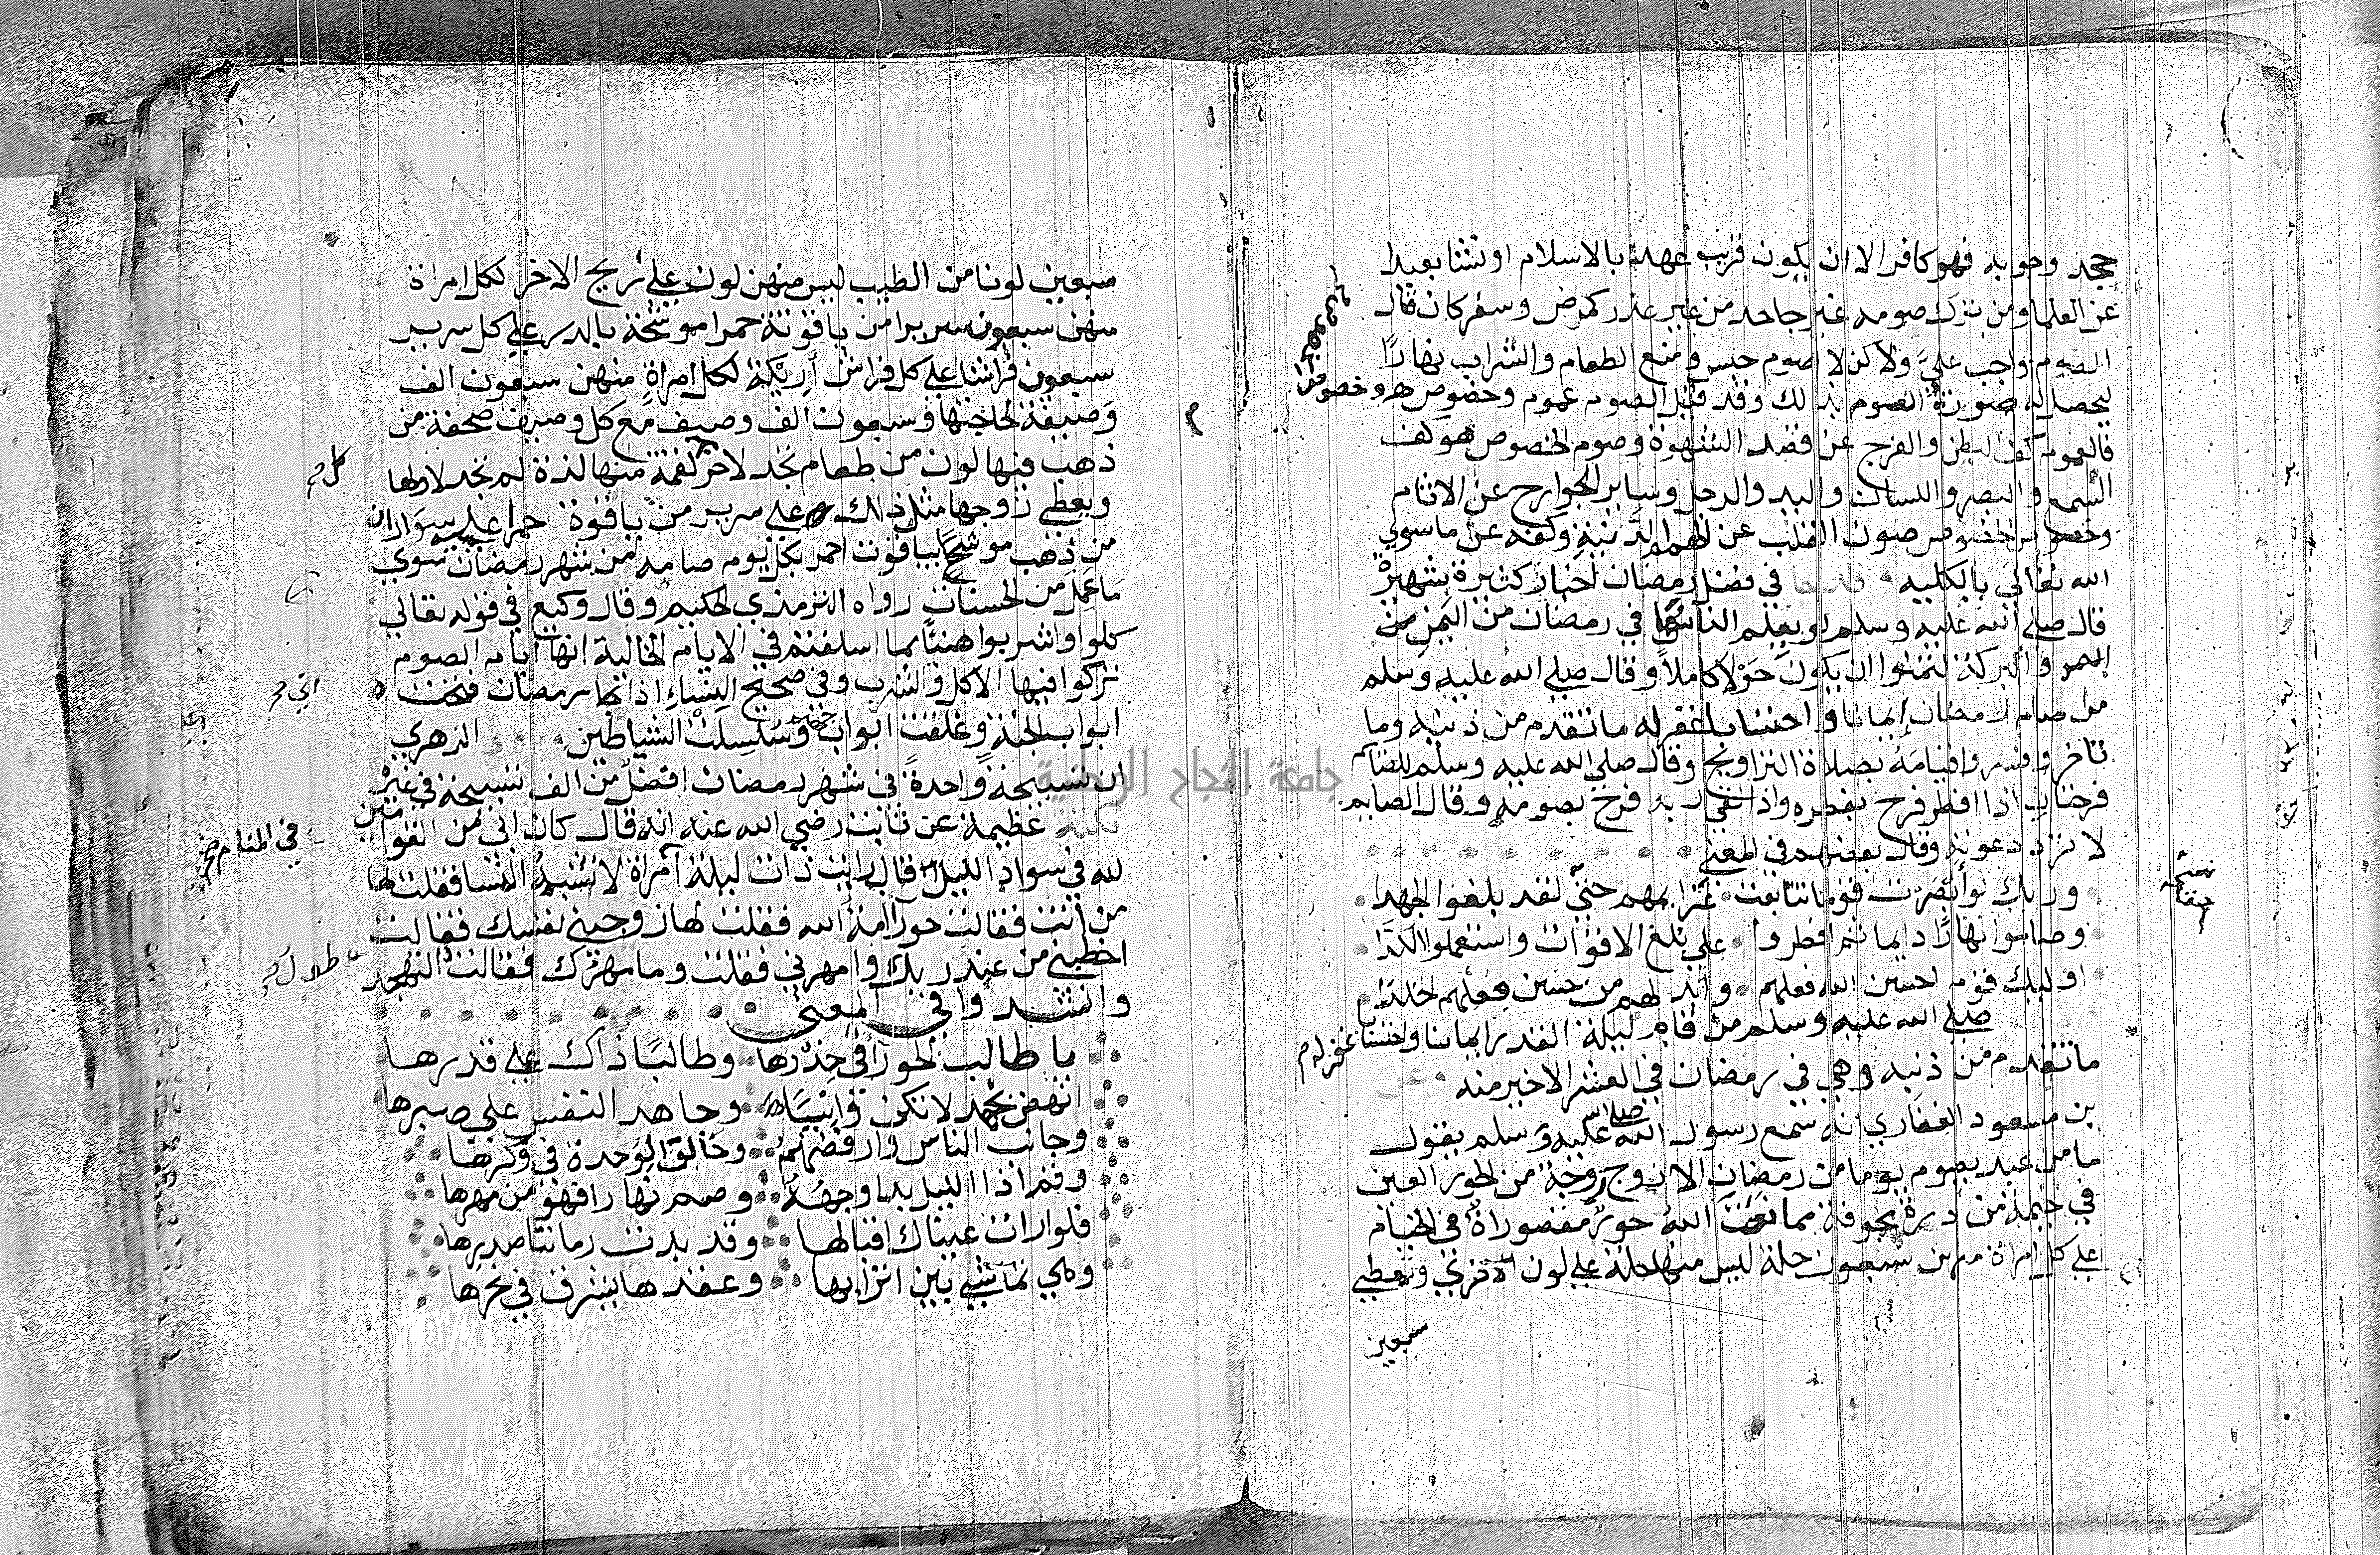 جحد وجوبه فهو كافر الا ان يكون قريب عهد بالاسلام او نشا بعيدا
عن العلما ومن ترك صومه غير جاحد من غير عذر كمرض وسفر كان قال
الصوم واجب عليَّ ولاكن لا اصوم حبس ومنع الطعام والشراب نهارًا
ليحصل له صورة الصوم بذلك وقد قيل الصوم عموم وخصوص وخصوص
خصوص
فالعموم كف البطن والفرج عن قصد الشهوة وصوم الخصوص هو كف
السمع والبصر واللسان واليد والرجل وساير الجوارح عن الاثام
وخصوص الخصوص صون القلب عن الهمم الدنية وكفه عن ما سوي
الله تعالي بالكليه في فضل رمضان اخبار كثيرة شهيرة
قال صلي الله عليه وسلم لو يعلم الناس ما في رمضان من اليمن
والبركة لتمنوا ان يكون حولا كاملا وقال صلي الله عليه وسلم
من صام رمضان إيمانا واحتسابا غفر له ما تقدم من ذنبه وما
تاخر وفسروا قيامه بصلاة التراويح وقال صلي الله عليه وسلم للصائم
فرحتان اذا افطر فرح بفطره واذا لقي ربه فرح بصومه وقال الصايم
لا ترد دعوته وقال بعضهم في المعني
وربك لو أبصرت قوما تتابعت عزايمهم حتي لقد بلغوا الجهدا
وصاموا نهارًا دايما ثم افطروا علي بلغ الاقوات واستعملوا الكدا
اوليك قوم احسن الله فعلهم وابدلهم من حسن فعلهم الخلدا
صلي الله عليه وسلم من قام ليلة القدر ايمانا واحتسابا غفر له
ما تقدم من ذنبه وهي في رمضان في العشر الاخير منه
بن مسعود الغفاري انه سمع رسول الله صلي الله عليه وسلم يقول
ما من عبد يصوم يوما من رمضان الا زوج زوجة من الحور العين
في خيمة من درة مجوفة مما نعت الله حور مقصوراة في الخيام
علي كل امراة منهن سبعون حلة ليس منها حلة علي لون الاخري وتعطي
سبعين
نسخة
سبعين لونا من الطيب ليس منهن لون علي ريح الاخر لكل امراة
منهن سبعون سريرا من ياقوتة حمرا موشحة بالدر علي كل سرير
سبعون فراشا علي كل فراش أريكة لكل امراةٍ منهن سبعون الف
وصيفة لحاجتها وسبعون الف وصيف مع كل وصيف صحفة من
ذهب فيها لون من طعام تجد لاخر لقمة منها لذة لم تجد لاولها
ويعطي زوجها مثل ذالك علي سرير من ياقوة حمرا عليه سواران
من ذهب موشح بياقوت احمر بكل يوم صامه من شهر رمضان سوي
ما عمل من الحسنات رواه الترمذي الحكيم وقال وكيع في قوله تعالي
كلوا واشربوا هنئًا بما اسلفتم في الايام الخالية انها ايام الصوم
تركوا فيها الاكل والشرب وفي صحيح النساءِ اذا جا رمضان فتحت
ابواب الجنة وغلقت ابواب جهنم وسُلسِلَت الشياطين الزهري
ان تسبيحة واحدةً في شهر رمضان افضل من الف تسبيحة في غيره
نكتة عظيمة عن ثابت رضي الله عنه انه قال كان ابي من القوامين
لله في سواد الليل قال رايت ذات ليلة امراة لا تشبه النسا فقلت لها
في المنام
من انت فقالت حورا امة الله فقلت لها زوجيني نفسك فقالت
اخطبني من عند ربك وامهرني فقلت وما مهرك فقالت التهجد
وانشدوا في المعني
يا طالب الحورا في خدرها وطالبًا ذاك علي قدرها
انهض بجهد لا تكن وانيا وجاهد النفس علي صبرها
وجانب الناس وارفضهم وحالق الوحدة في وكرها
وقم اذا الليل بدا وجهه وصم نهارا فهو من مهرها
فلو رات عيناك اقبالها وقد بدت رمانتا صدرها
وهي تماشي بين اترابها وعقدها يشرق في نحرها
جامعة النجاح الوطنية